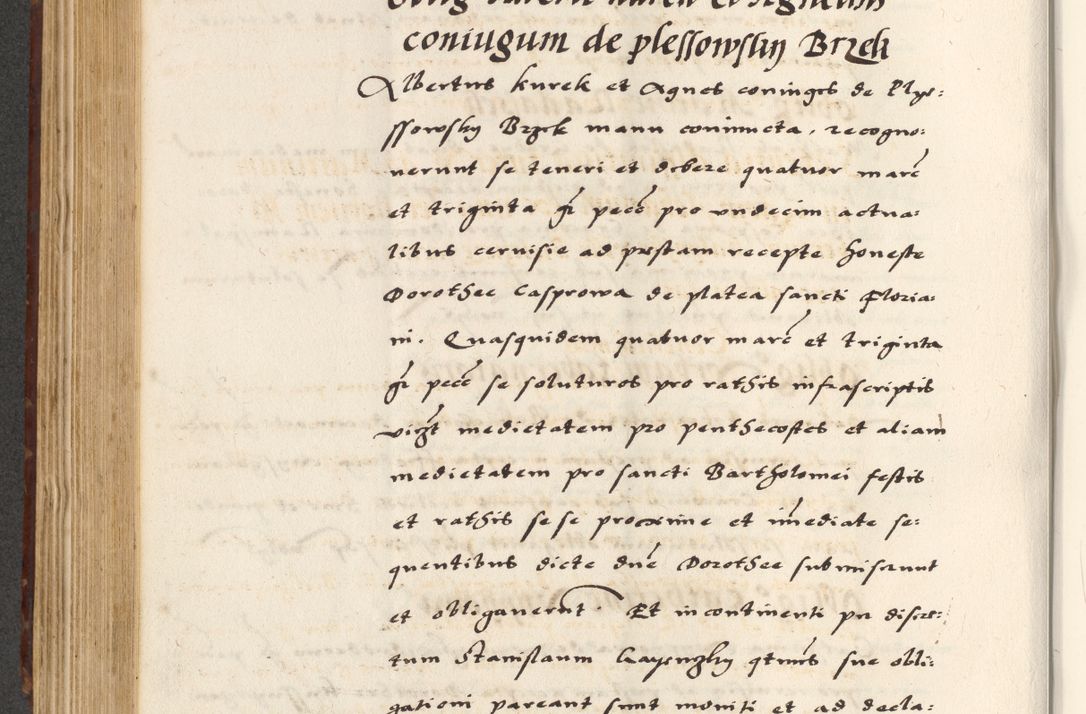 coniugum de plessowsky Brzek
Albertus kurek et Agnes coniuges de Plye:
ssowsky Brzek manu coniuncta, recogno:
uerunt se teneri et debere quatuor marc̃
et triginta gr̃ pecc̃ pro vndecim actua:
libus ceruisie ad prestam recepte honeste
Dorothee Casprowa de platea sancti Floria:
ni. Quasquidem quatuor marc̃ et triginta
gr̃ pecc̃ se soluturos pro rathis infrascriptis
vigt̃ medietatem pro penthecostes et aliam
medietatem pro sancti Bartholomei festis
et rathis sese proxime et im̃ediate se:
quentibus dicte dnẽ Dorothee submiserunt
et obligauerunt. Et incontinenti pn discre:
tum Stanislaum qtmũs sue obli:
gationi pareant sunt moniti et ad decla: